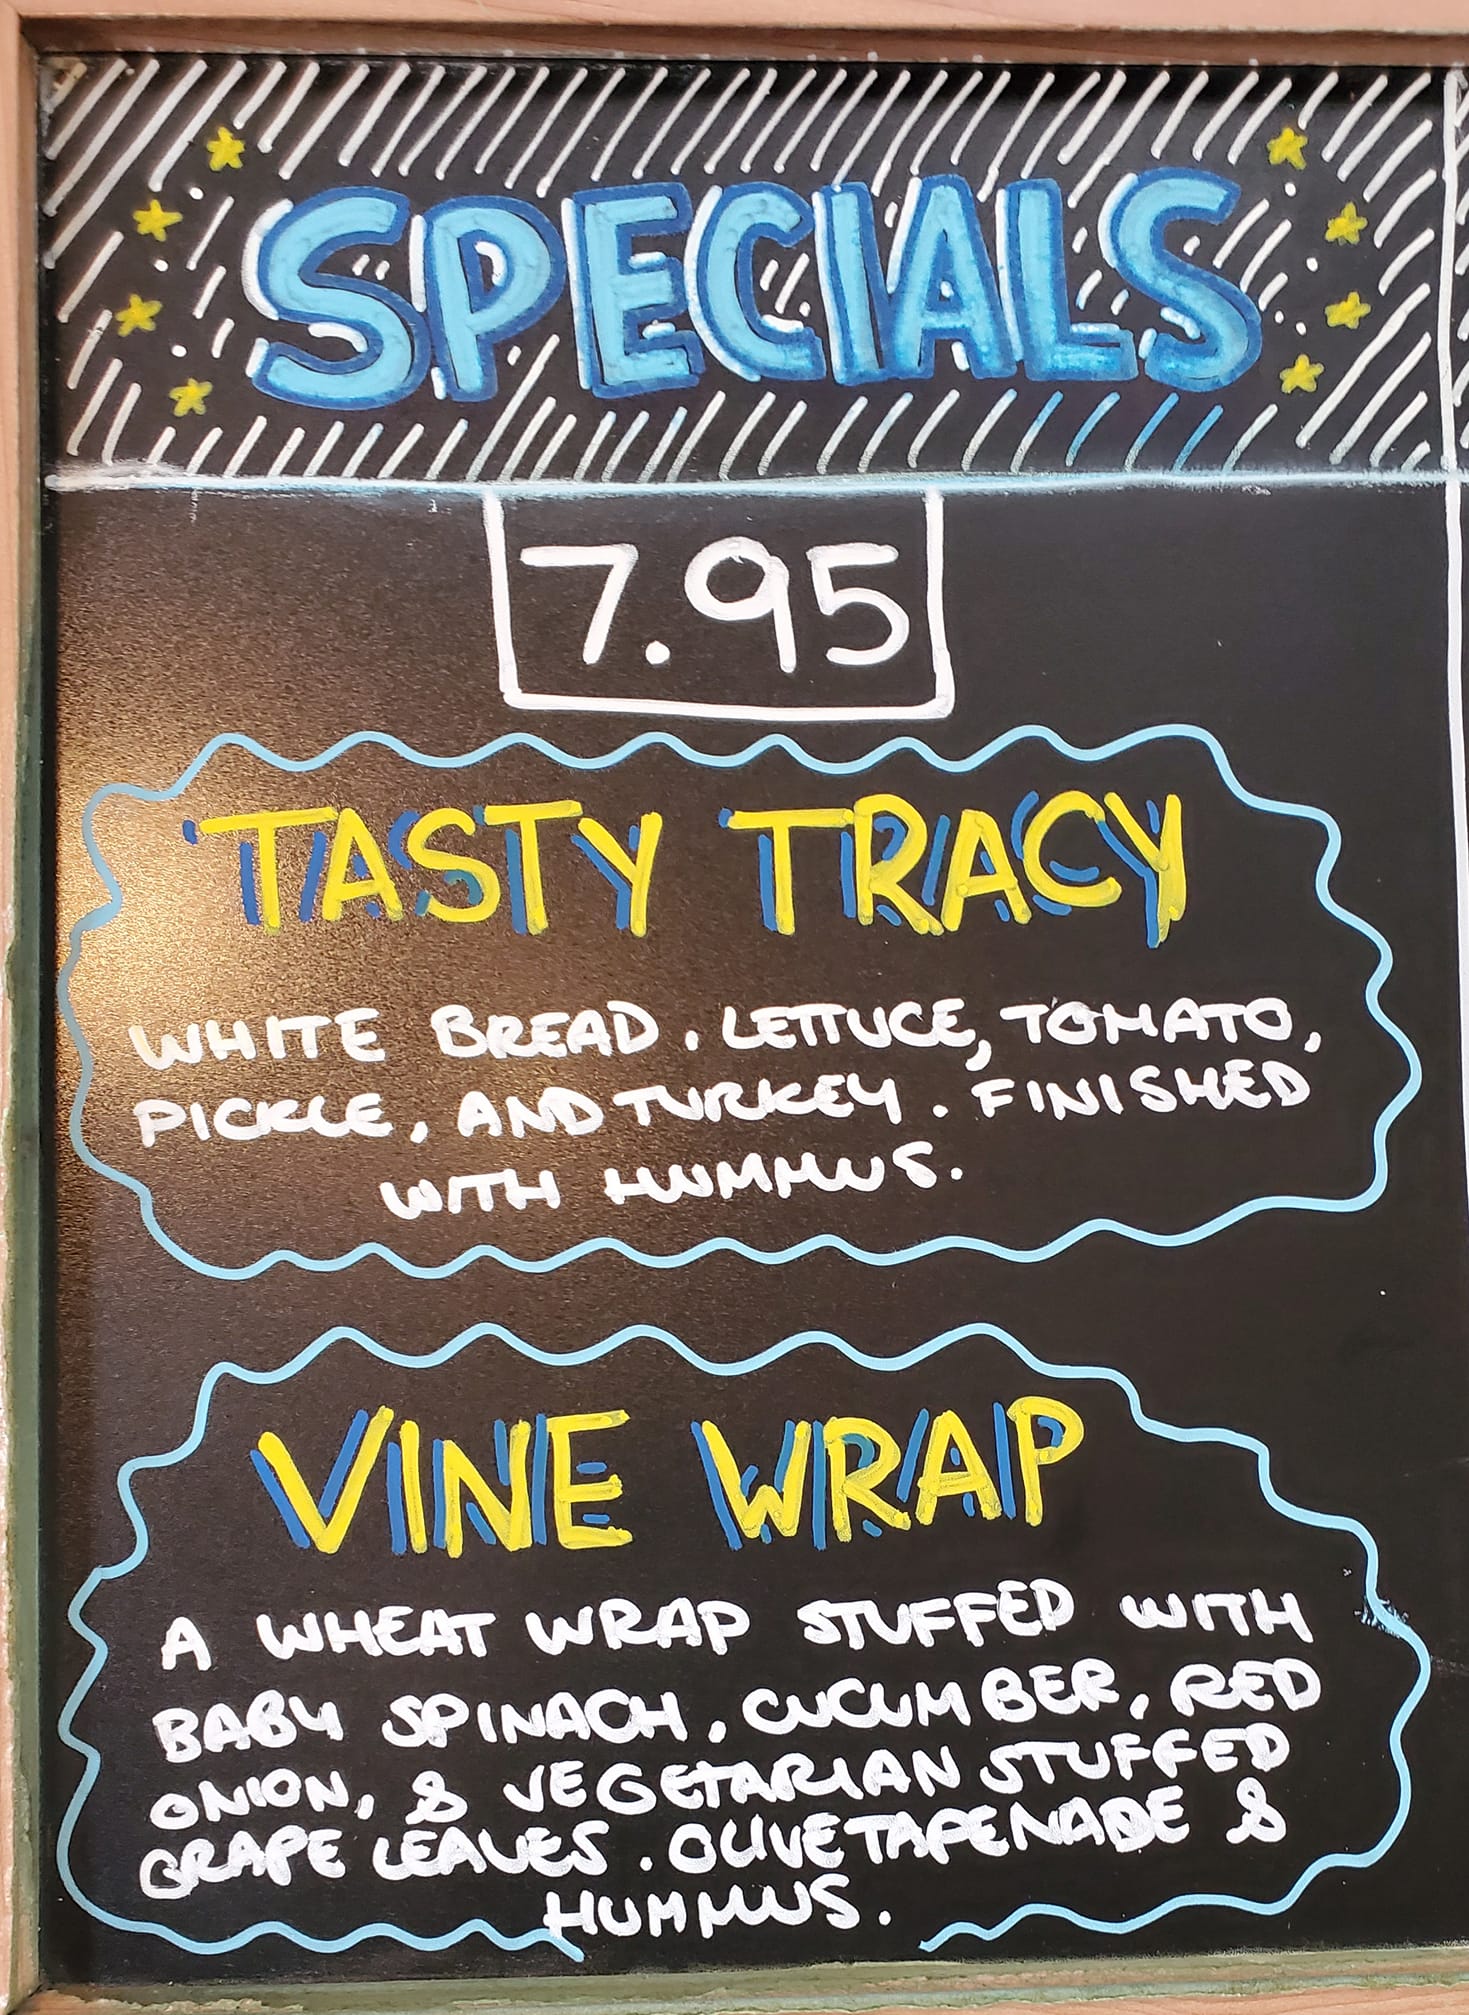 SPECIALS
7.95
TASTY TRACY
WHITE BREAD. LETTUCE, TOMATO,
PICKLE, AND TURKEY. FINISHED
WITH HUMMUS.
VINE WRAP
A WHEAT WRAP STUFFED WITH
BABY SPINACH, CUCUMBER, RED
ONION, & VEGETARIAN STUFFED
GRAPE LEAVES. OLIVE TAPENADE &
HUMMUS.